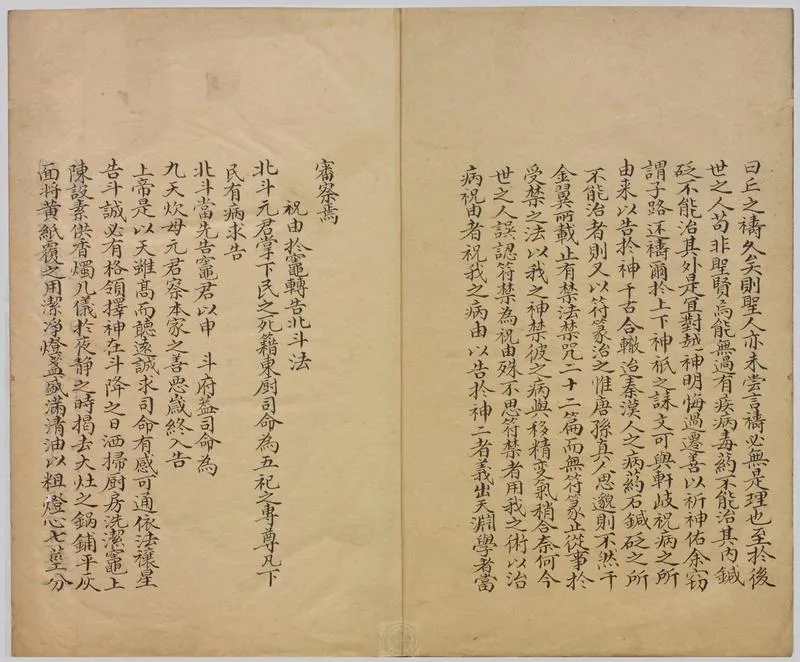 曰丘之禱久矣則聖人亦未嘗言禱必無是理也至於後
世之人苟非聖賢焉能無過有疾病毒药不能治其內鍼
砭不能治其外是宜對越神明悔過遷善以祈神佑余竊
謂子路述禱爾於上下神祇之誄文可與軒岐祝病之所
由来以告於神千古合轍迨秦漢人之病药石鍼砭之所
不能治者則又以符篆治之惟唐孫真人思邈則不然千
金翼所載止有禁法禁咒二十二篇而無符篆止從事於
受禁之法以我之神禁彼之病與移精变氣稍合奈何今
世之人誤認符禁為祝由殊不思符禁者用我之術以治
病祝由者祝我之病由以告於神二者義出天淵學者當
審察焉
祝由於竈轉告北斗法
北斗元君掌下民之死籍東厨司命為五祀之專尊凡下
民有病求告
北斗當先告竈君以申 斗府葢司命為
九天炊母元君察本家之善惡嵗終入告
上帝是以天雖髙而聽逺誠求司命有感可通依法禳星
告斗誠必有格領擇神在斗降之日洒掃厨房洗潔竈上
陳設素供香燭几儀於夜静之時揭去大灶之鍋鋪平灰
面将黄紙覆之用潔净燈盞盛滿清油以粗燈心七莖分